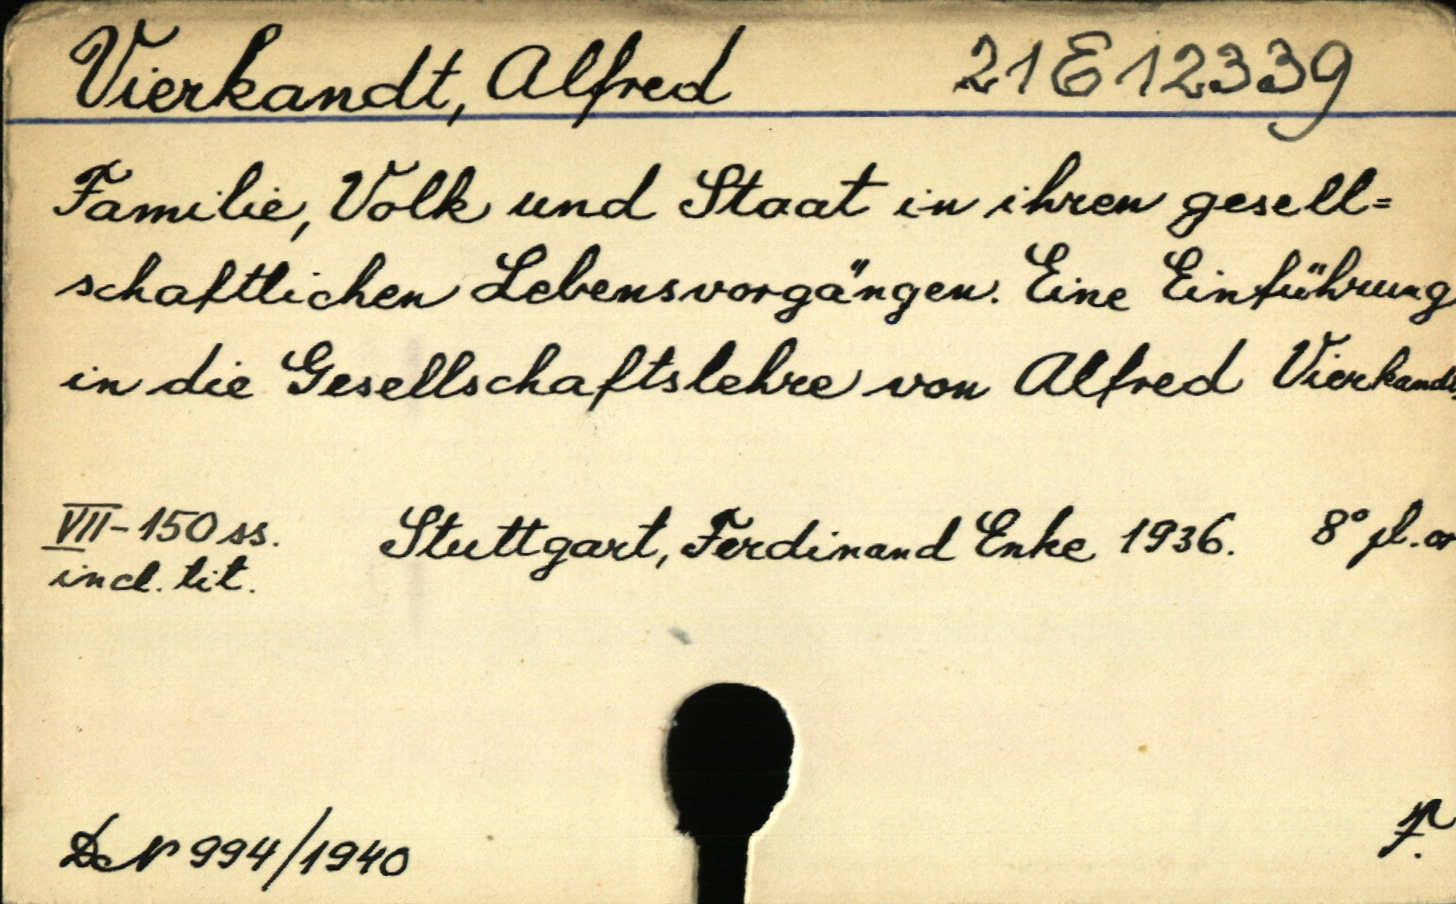 Vierkandt, Alfred 21E12339
Familie, Volk und Staat in ihren gesell=
schaftlichen Lebensvorgängen. Eine Einführung
in die Gesellschaftslehre von Alfred Vierkandt
VII-150 ss. Stuttgart, Ferdinand Enke 1936. 8° pl. or
incl. tit.
994/1940